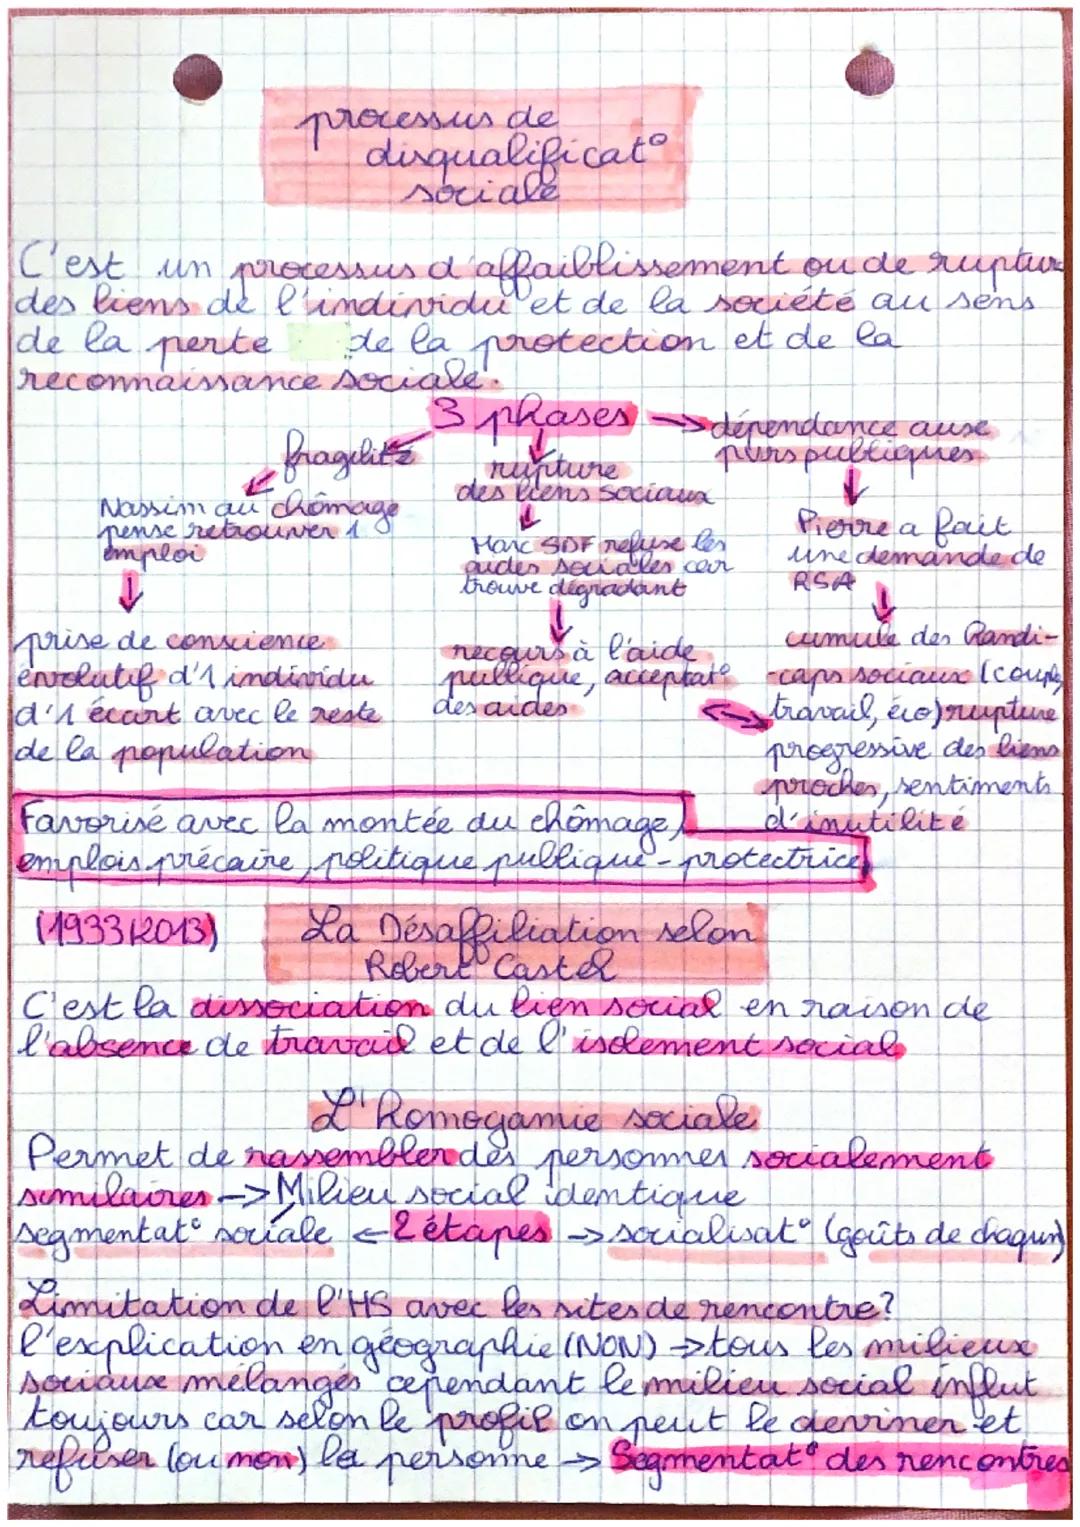 processus de
disqualificat°
sociale
C'est un processus d'affaiblissement ou de rupture
des liens de l'individu et de la société au sens
de la perte de la protection et de la
reconnaissance sociale.
3 phases
fragilité
Nassim au chômage
pense retrouver 1
emploi
prise de conscience
évolutif d'1 individu
d'1 écart avec le reste
de la population
rupture
des liens sociaux
Marc SDF refuse les
aides sociales car
trouve dégradant
recours à l'aide
publique, acceptat°
des aides
dépendance aux
purs publiques
Pierre a fait
une demande de
RSA
cumule des handi-
-caps sociaux (couple,
travail, éco) rupture
progressive des liens
proches, sentiments
d'inutilité
Favorisé avec la montée du chômage,
emplois précaire, politique publique - protectrice
(1933|2013)
La Désaffiliation selon
Robert Castel
C'est la dissociation du lien social en raison de
l'absence de travail et de l'isolement social
L'homogamie sociale
Permet de rassembler des personnes socialement
similaires -> Milieu social identique
segmentat° sociale <- 2 étapes -> socialisat° (goûts de chaqun)
Limitation de l'HS avec les sites de rencontre?
l'explication en géographie (NON) -> tous les milieux
sociaux mélangés cependant le milieu social influt
toujours car selon le profil on peut le deviner et
refuser (ou non) la personne -> Segmentat° des rencontres